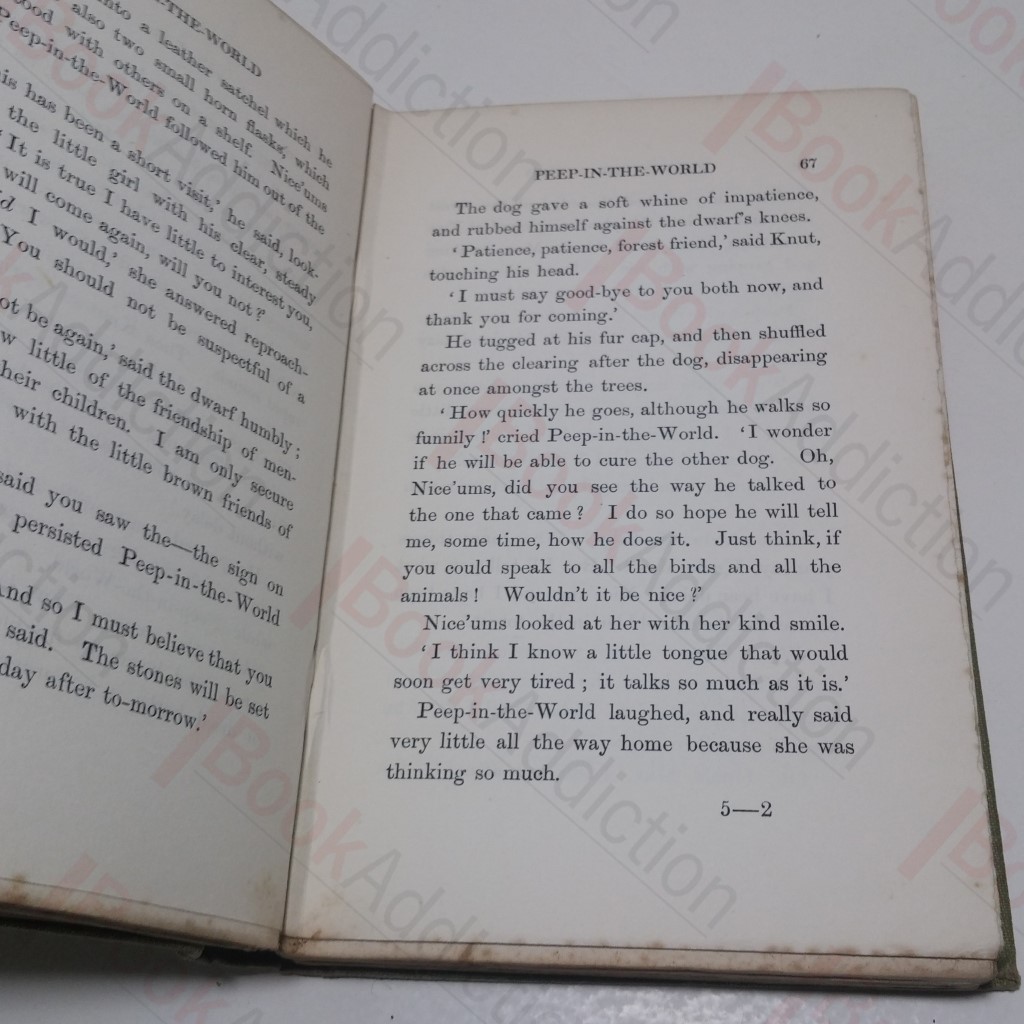 -THE-WORLD
into a leather satchel which he
also two small horn flasks, which
ood with others on a shelf. Nice'ums
Peep-in-the-World followed him out of the
is has been a short visit,' he said, look-
the little girl with his clear, steady
'It is true I have little to interest you,
will come again, will you not?'
I would,' she answered reproach-
You should not be suspectful of a
ot be again,' said the dwarf humbly;
w little of the friendship of men-
heir children. I am only secure
with the little brown friends of
said you saw the—the sign on
persisted Peep-in-the-World
And so I must believe that you
said. The stones will be set
day after to-morrow.'
PEEP-IN-THE-WORLD 67
The dog gave a soft whine of impatience,
and rubbed himself against the dwarf's knees.
'Patience, patience, forest friend,' said Knut,
touching his head.
'I must say good-bye to you both now, and
thank you for coming.'
He tugged at his fur cap, and then shuffled
across the clearing after the dog, disappearing
at once amongst the trees.
'How quickly he goes, although he walks so
funnily!' cried Peep-in-the-World. 'I wonder
if he will be able to cure the other dog. Oh,
Nice'ums, did you see the way he talked to
the one that came? I do so hope he will tell
me, some time, how he does it. Just think, if
you could speak to all the birds and all the
animals! Wouldn't it be nice?'
Nice'ums looked at her with her kind smile.
'I think I know a little tongue that would
soon get very tired; it talks so much as it is.'
Peep-in-the-World laughed, and really said
very little all the way home because she was
thinking so much.
5—2
BookAddiction